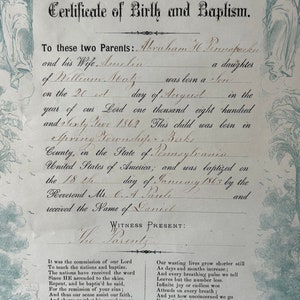 Certificate of Birth and Baptism.
To these two Parents: Abraham H Pennepacker
and his Wife Amelia a daughter
of William Mertz was born a Son
on the 20 st day of August in the
year of our Lord one thousand eight hundred
and Sixty Two 1862 This child was born in
Township Berks
County, in the State of Pennsylvania
United States of America; and was baptized on
the 18th day of January 1863 by the
Reverend Mr. C. A
received the Name of Daniel
WITNESS PRESENT:
The Parents
It was the commission of our Lord
To teach the nations and baptize.
The nations have received the word
Since HE ascended to the skies.
Repent, and be baptiz'd he said,
For the remission of your sins;
And thus our sense assist our faith,
Our wasting lives grow shorter still
As days and months increase;
And every breathing pulse we tell
Leaves but the number less.
Infinite joy or endless woe
Attends on every breath;
And yet how unconcerned we go